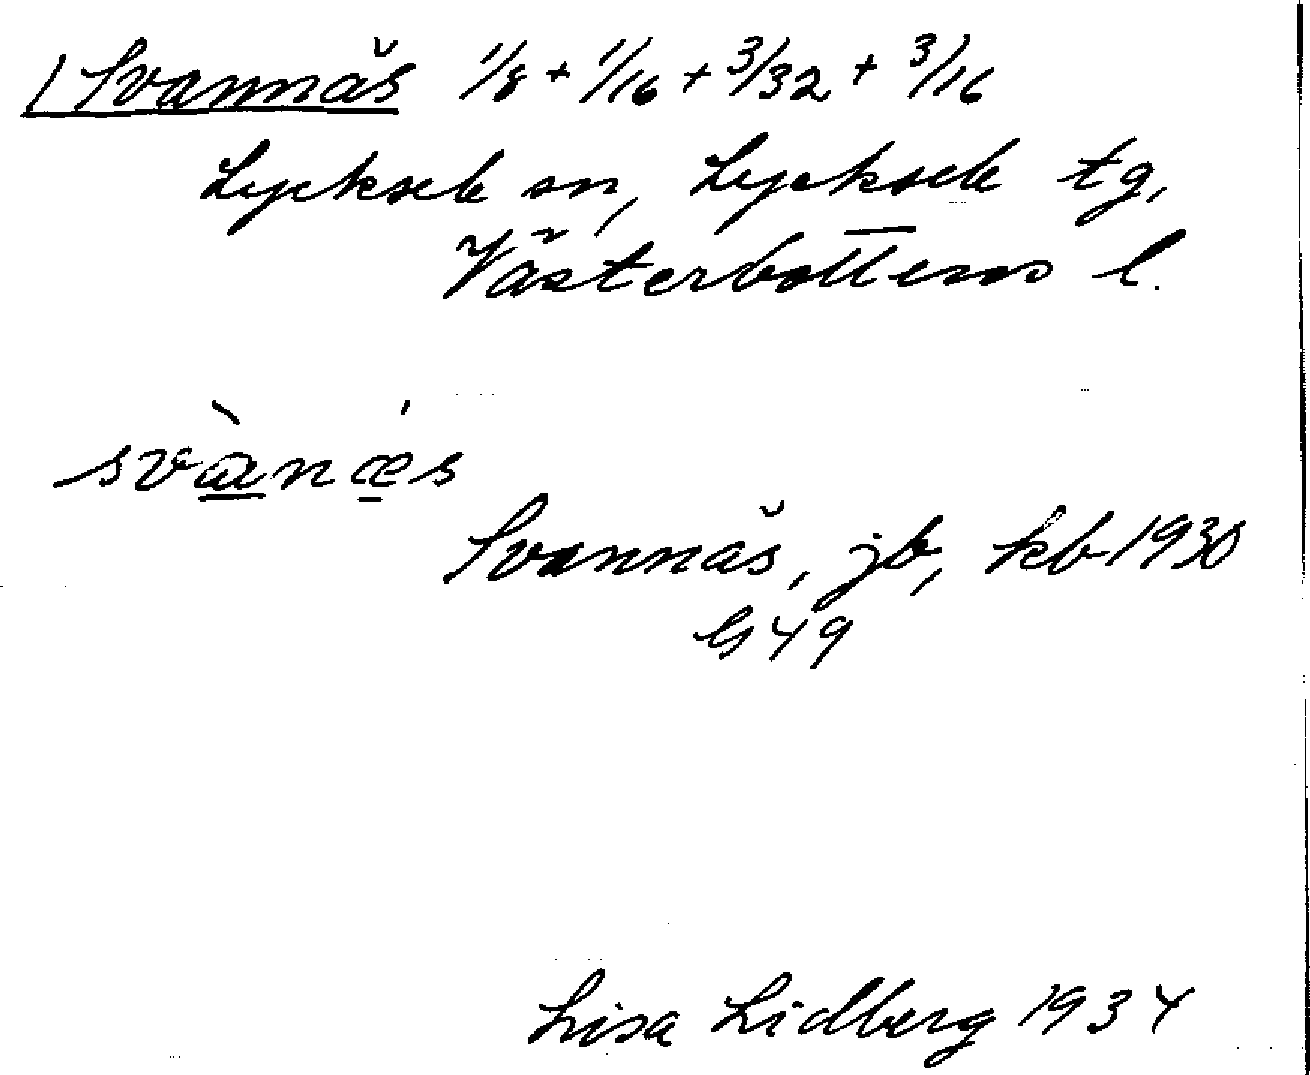 / Svannäs 1/8 + 1/16 + 3/32 + 3/16
Lycksele sn, Lycksele tg,
Västerbottens l.
svànæ´s
Svannäs, jb, kb 1930
G49
Lisa Lidberg 1934